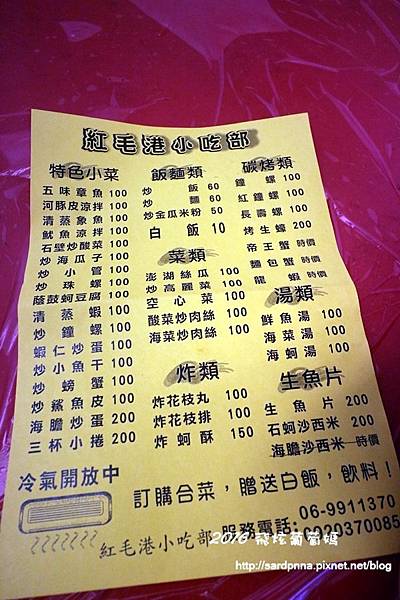 紅毛港小吃部
特色小菜
五味章魚 100
河豚皮涼拌 100
清蒸象魚 100
魷魚涼拌 100
石壁炒酸菜 100
炒海瓜子 100
炒小管 100
炒珠螺 100
蔭鼓蚵豆腐 100
清蒸蝦 100
炒鐘螺 100
蝦仁炒蛋 100
炒小魚干 100
炒螃蟹 100
炒鯊魚皮 100
海膽炒蛋 200
三杯小捲 200
飯麵類
炒飯 60
炒麵 60
炒金瓜米粉 50
白飯 10
菜類
澎湖絲瓜 100
炒高麗菜 100
空心菜 100
酸菜炒肉絲 100
海菜炒肉絲 100
炸類
炸花枝丸 100
炸花枝排 100
炸蚵酥 150
碳烤類
鐘螺 100
紅鐘螺 100
長壽螺 100
烤生蠔 200
帝王蟹 時價
麵包蟹 時價
龍蝦 時價
湯類
鮮魚湯 100
海菜湯 100
海蚵湯 100
生魚片
生魚片 200
石蚵沙西米 200
海膽沙西米 時價
冷氣開放中
訂購合菜，贈送白飯，飲料！
06-9911370
紅毛港小吃部 服務電話: 0920370085
2016 飛炫葡萄媽
http://sardpnna.pixnet.net/blog